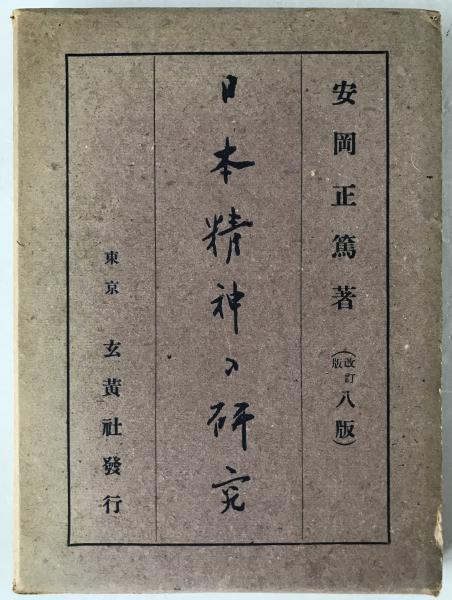 安岡正篤著(改訂版八版)
日本精神の研究
東京 玄黃社發行